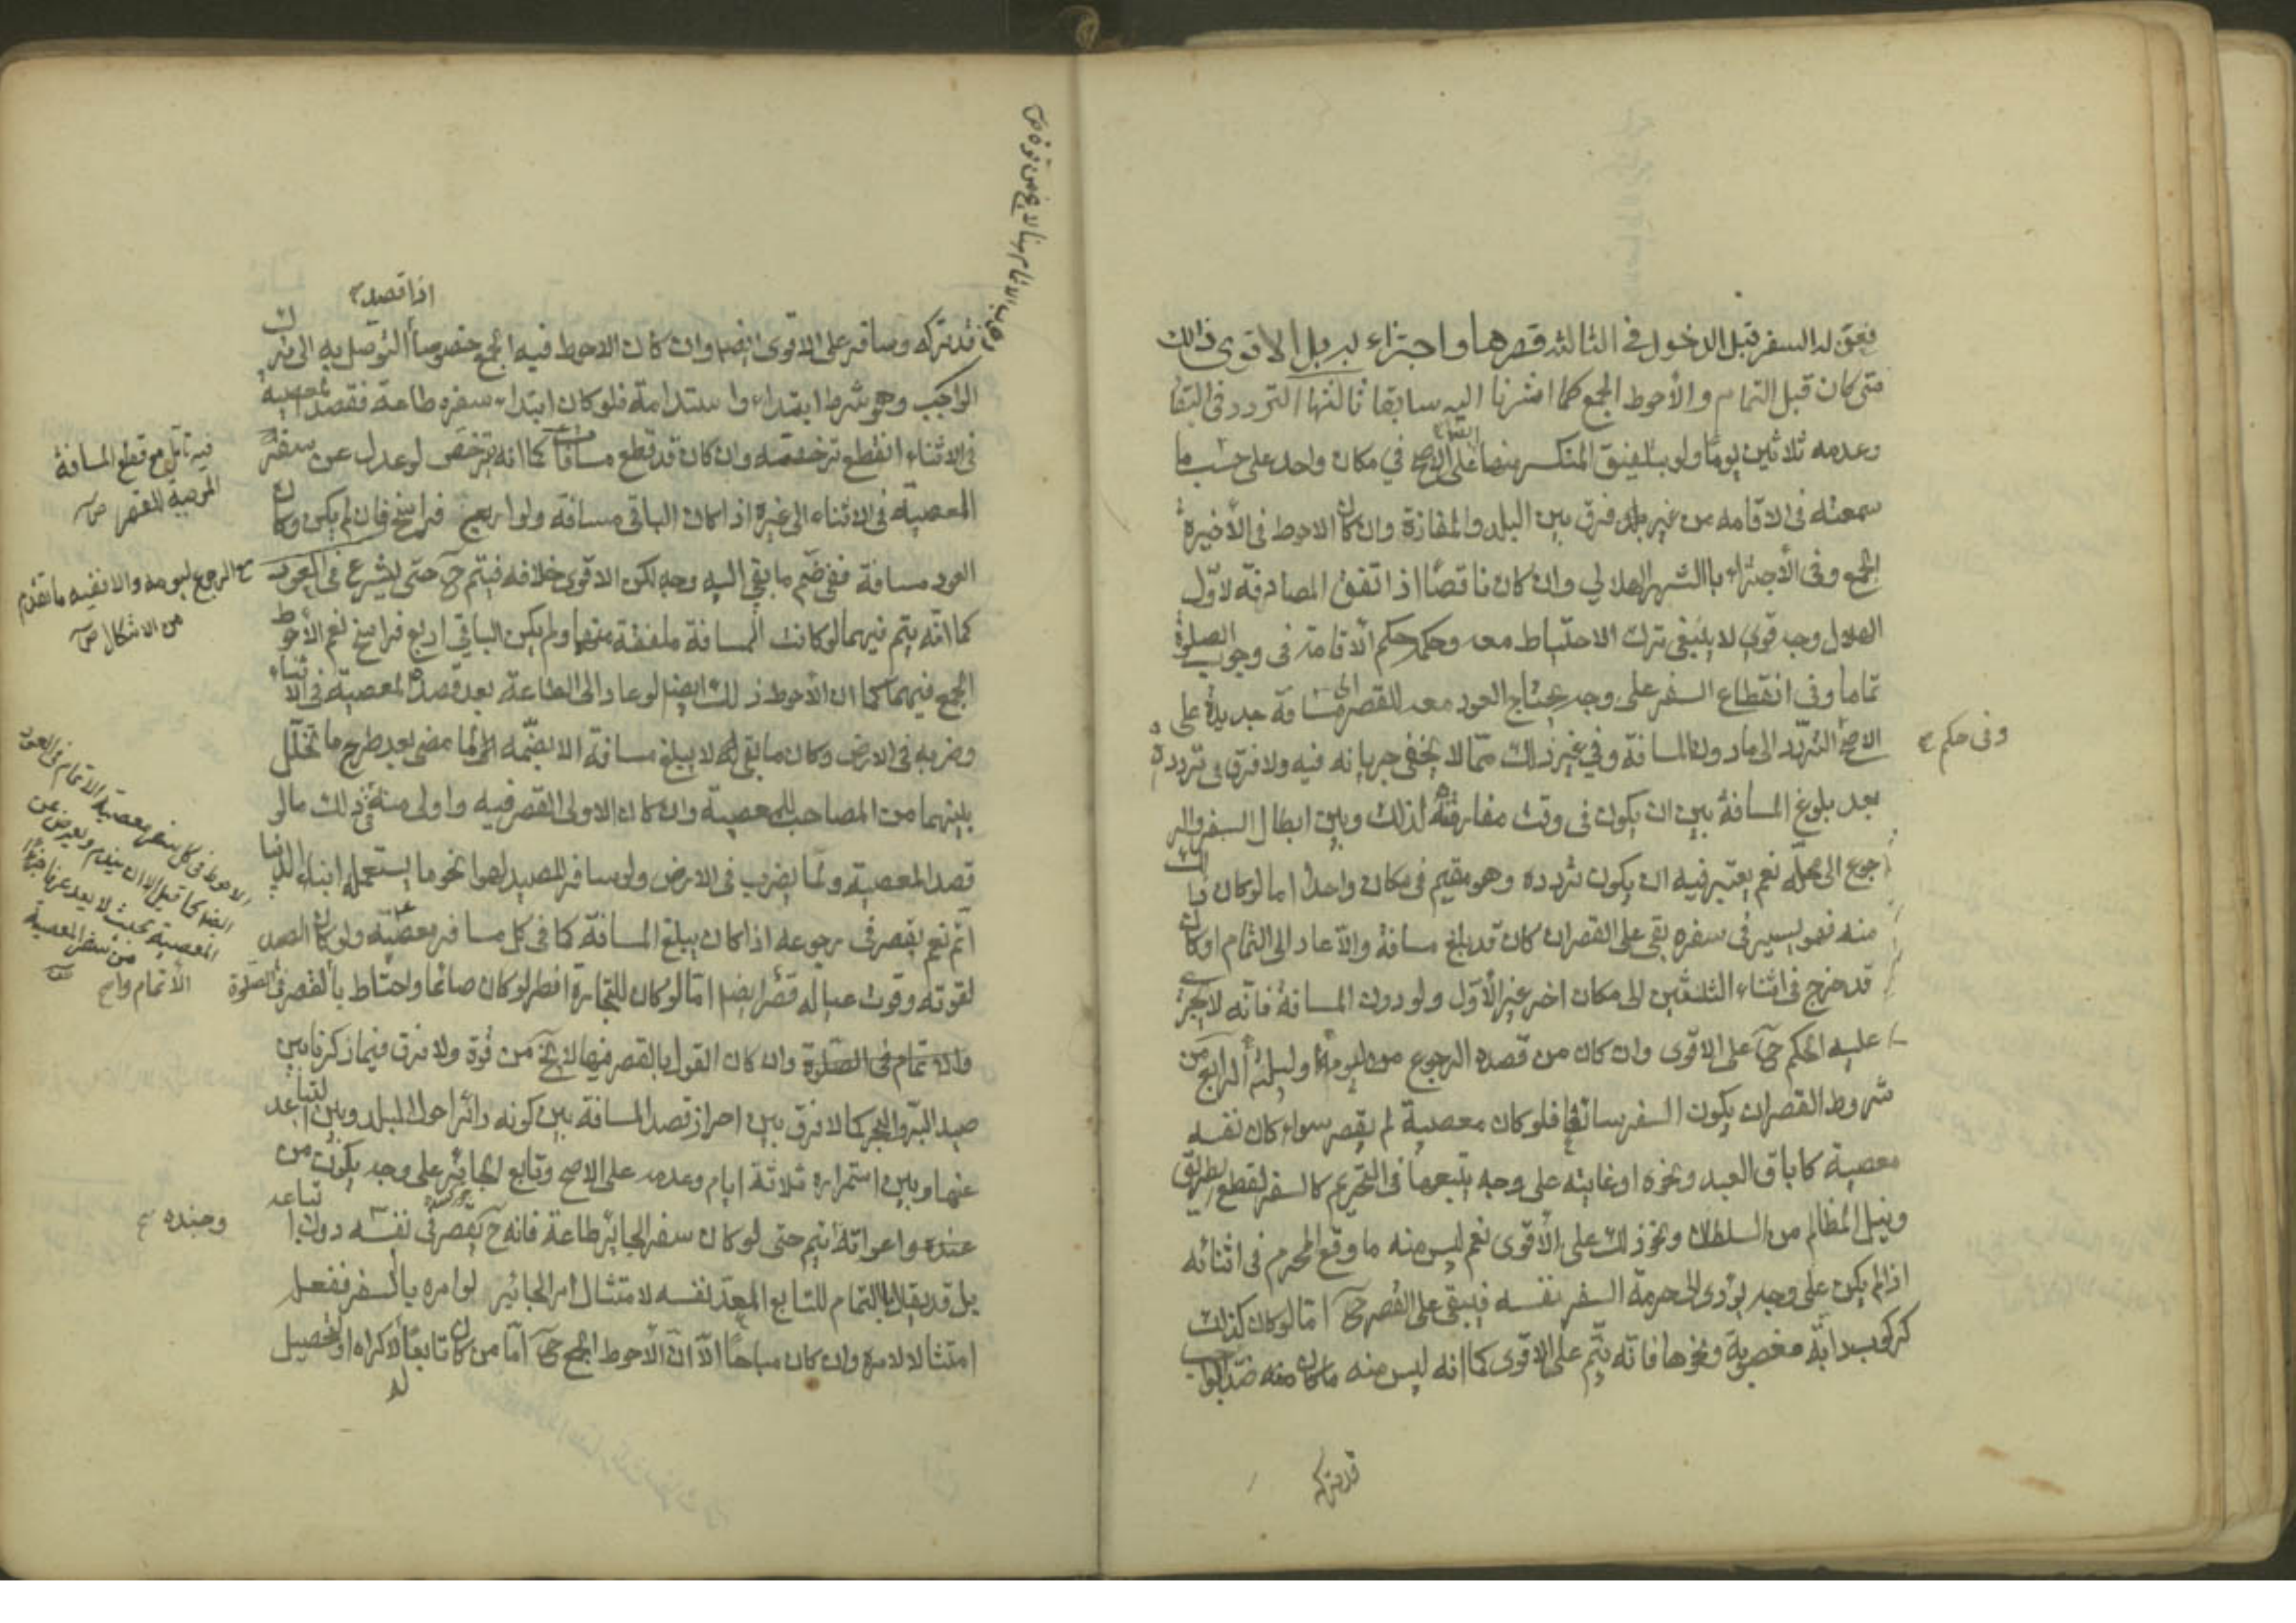 فعنّ له السفر قبل الدخول في الثالثة قصرها واجتزاء به بل الاقوى ذالك
متى كان قبل التمام والأحوط الجمع كما اشرنا اليه سابقا ثالثها التردد في البقا
وعدمه ثلاثين يومًا ولو بتلفيق المنكسر منها على الاصح في مكان واحد على حسب ما
سمعته في الاقامه من غير فرق بين البلد والمفازة وان كان الاحوط في الأخيرة
الجمع وفى الأجتزاء باالشهر الهلالي وان كان ناقصًا اذا اتفق المصادفة لاوّل
الهلال وجه قوي لا ينبغى ترك الاحتياط معه وحكمه حكم الاقامة في وجوب الصلوة
تماما وفى انقطاع السفر على وجه يحتاج العود معه للقصر الى مسافة جديدة على
الاصح التردّد الى مادون المسافة وفي غير ذلك ممّا لا يخفى جريانه فيه ولا فرق في تردده
وفى حكم
بعد بلوغ المسافة بين ان يكون فى وقت مفارقته لذلك وبين ابطال السفر والر
جوع الى محله نعم يعتبر فيه ان يكون تردده وهو مقيم فى مكان واحد اما لو كان
منه فهو يسير فى سفره بقى على القصر ان كان قد بلغ مسافة والّا عاد الى التمام او كان
قد خرج في اثناء الثلثين الى مكان اخر غير الأوّل ولو دون المسافة فانّه لا يجرى
عليه الحكم ح على الاقوى وان كان من قصده الرجوع من يومه او ليلته الرابع من
شروط القصر ان يكون السفر سائغا فلو كان معصية لم يقصر سواء كان نفسه
معصية كاباق العبد ونحوه او غايته على وجه يتبعها فى التحريم كالسفر لقطع الطريق
ونيل المظالم من السلطان ونحو ذلك على الأقوى نعم ليس منه ما وقع المحرم فى اثنائه
اذا لم يكن على وجه يؤدى الى حرمة السفر نفسه فيبقى على القصر ح امّا لو كان كذلك
كركوب دابّة مغصوبة ونحوها فانه يتم على الاقوى كما انه ليس منه ما كان منه ضد الواجب
قد يتركه
اذا قصد
قد تركه وسافر على الاقوى ايضا وان كان الاحوط فيه الجمع خصوصاً التوصل به الى ترك
الواجب وهو شرط ابتداء واستدامة فلو كان ابتداء سفره طاعة فقصد المعصية
في الاثناء انقطع ترخصه وان كان قد قطع مسافات كما انه يترخص لو عدل عن سفر
المعصية فى الاثناء الى غيره اذا كان الباقى مسافة ولو اربع فراسخ فان لم يكن وكان
العود مسافة ففى ضم ما بقي اليه وجه لكن الاقوى خلافه فيتم ح حتى يشرع في العود
كما انه يتم فيهما لو كانت المسافة ملفقة منهما ولم يكن الباقي اربع فراسخ نعم الأحوط
الجمع فيهما كما ان الأحوط ذلك ايضا لو عاد الى الطاعة بعد قصد المعصية فى الاثناء
وضربه فى الارض وكان ما بقى له لا يبلغ مسافة الا بضمّه الى ما مضى بعد طرح ما تخلل
بينهما من المصاحب للمعصية وان كان الاولى القصر فيه واولى منه في ذلك ما لو
قصد المعصية ولمّا يضرب فى الارض ولو سافر للصيد لهوا نحو ما يستعمله ابناء الدنيا
اتم نعم يقصر في رجوعه اذا كان يبلغ المسافة كما فى كل مسافر معصية ولو كان الصيد
لقوته وقوت عياله قصّر ايضا امّا لو كان للتجارة افطر لو كان صائما واحتاط بالقصر في الصلوة
والاتمام فى الصلوة وان كان القول بالقصر فيها لا يخ من قوة ولا فرق فيما ذكرنا بين
صيد البرّ والبحر كما لا فرق بين احراز قصد المسافة بين كونه دائرا حول البلد وبين التباعد
عنها وبين استمراره ثلاثة ايام وعدمه على الاصح وتابع الجائر على وجه يكون من
عنده واعوانه يتم حتى لو كان سفر الجائر طاعة فانه ح يقصر فى نفسه دون اتباعه
بل قد يقال بالتمام للتابع المعدّ نفسه لامتثال امر الجائر لو امره بالسفر ففعل
امتثالا لامره وان كان مباحًا الّا انّ الأحوط الجمع ح امّا من كان تابعًا لاكراه او لتحصيل
فيه تأمل مع قطع المسافة
الموجبة للقصر
مع الرجوع ليومه والا ففيه ما تقدم
من الاشكال
الاحوط فى كل سفر معصية الاتمام فى العود
ايضا كما قيل الا ان يندم ويعرض عن
المعصية بحيث لا يعد عرفا جزءا
من سفر المعصية
الاتمام واصح
وجنده